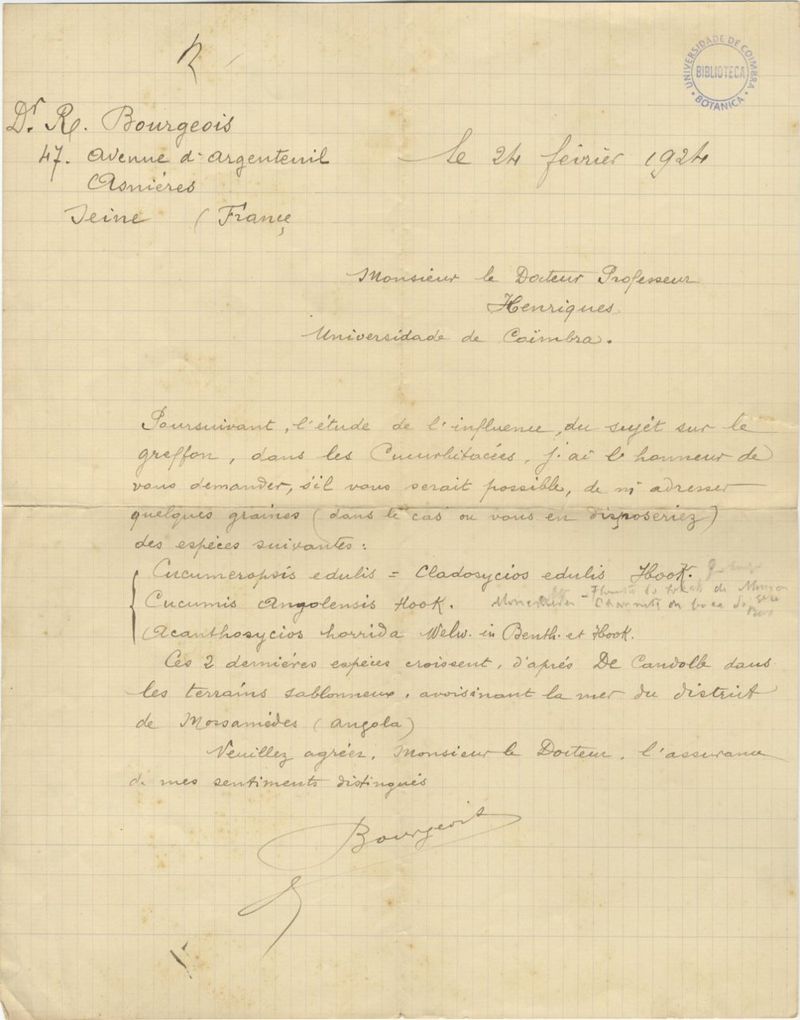 R
UNIVERSIDADE DE COIMBRA
BIBLIOTECA
BOTANICA
Dr. R. Bourgeois
47. Avenue d'Argenteuil
Asniéres
Seine (France
le 24 février 1924
Monsieur le Docteur Professeur
Henriques
Universidade de Coïmbra.
Poursuivant, l'étude de l'influence, du sujét sur le
greffon, dans les Cucurbitacées, j'ai l'honneur de
vous demander, s'il vous serait possible, de m'adresser
quelques graines (dans le cas ou vous en disposeriez)
des espéces suivantes:
Cucumeropsis edulis = Cladosycios edulis Hook.
Cucumis Angolensis Hook.
(Acanthosycios horrida Welw. in Benth. et Hook.
Ces 2 derniéres espéces croissent, d'aprés De Candolle dans
les terrains sablonneux, avoisinant la mer du district
de Mossamédes (Angola)
Veuillez agréer, Monsieur le Docteur, l'assurance
de mes sentiments distingués
Bourgeois